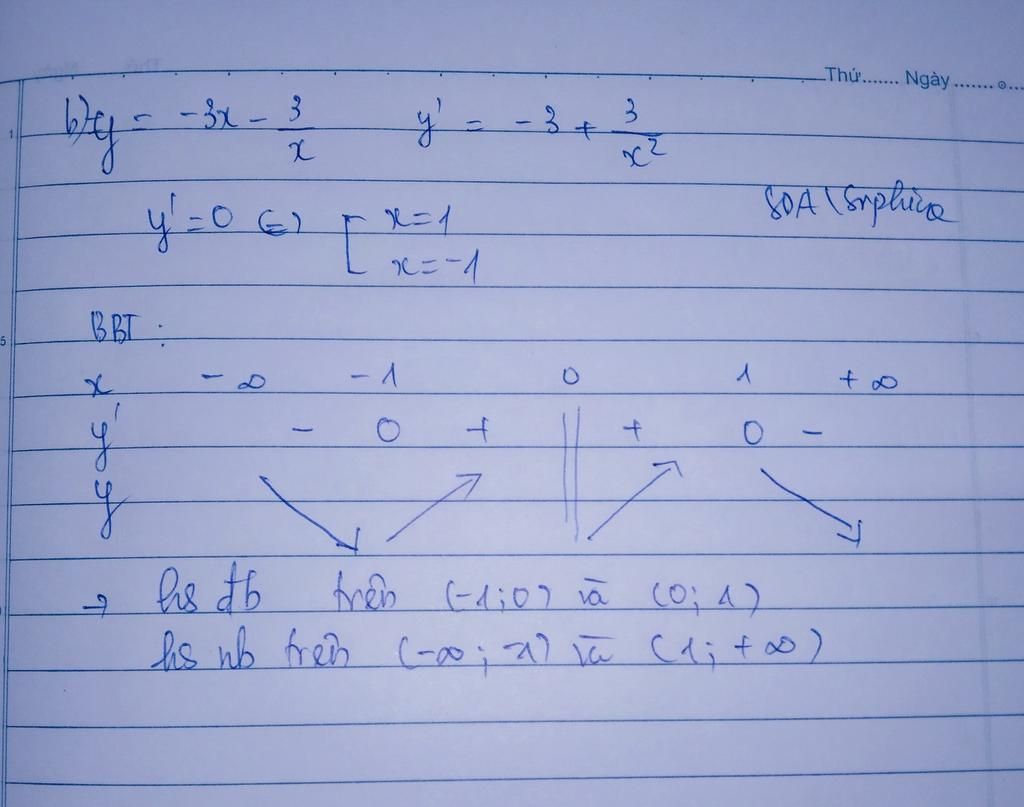 Thứ....... Ngày.......
b) y = -3x - 3/x y' = -3 + 3/x²
y' = 0 (=) [ x = 1
x = -1
BBT :
x -∞ -1 0 1 +∞
y' - 0 + || + 0 -
y ↘ ↗ || ↗ ↘
→ hs đb trên (-1; 0) và (0; 1)
hs nb trên (-∞; -1) và (1; +∞)